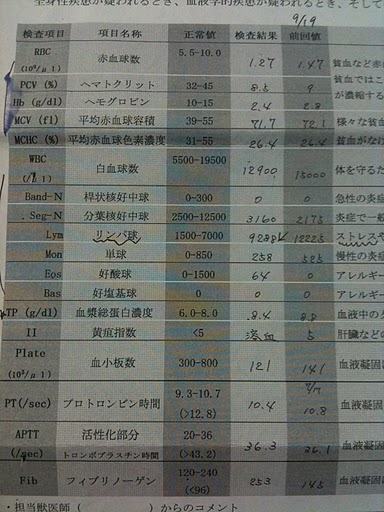 全身性疾患が疑われるとき、血液学的疾患が疑われるとき、そして
9/19
検査項目 項目名称 正常値 検査結果 前回値
RBC (10⁶/μl) 赤血球数 5.5-10.0 1.27 1.47 貧血など赤
PCV (%) ヘマトクリット 32-45 8.5 9 貧血ではこ
Hb (g/dl) ヘモグロビン 10-15 2.4 2.8 が濃縮する
MCV (fl) 平均赤血球容積 39-55 71.7 72.1 様々な貧血
MCHC (%) 平均赤血球色素濃度 31-55 26.4 26.4 貧血がなけ
WBC (/μl) 白血球数 5500-19500 12900 15000 体を守るた
Band-N 桿状核好中球 0-300 0 0 急性の炎症
Seg-N 分葉核好中球 2500-12500 3160 2175 炎症で一般
Lym リンパ球 1500-7000 9288 12225 ストレスや
Mon 単球 0-850 258 525 慢性の炎症
Eos 好酸球 0-1500 64 0 アレルギー
Bas 好塩基球 0 0 0 アレルギー
TP (g/dl) 血漿総蛋白濃度 6.0-8.0 8.4 8.8 血液中の
II 黄疸指数 <5 溶血 5 肝臓などの
Plate (10³/μl) 血小板数 300-800 121 141 血液凝固
PT(/sec) プロトロンビン時間 9.3-10.7 (>12.8) 10.4 10.8 血液凝固
APTT (/sec) 活性化部分トロンボプラスチン時間 20-36 (>43.2) 36.3 36.1 血液凝固
Fib フィブリノーゲン 120-240 (<96) 253 145 血液凝固
・担当獣医師 ( ) からのコメント